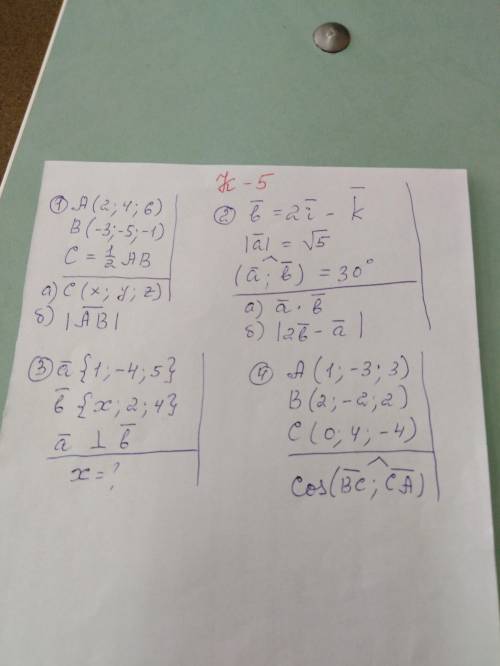 К-5
① A(2; 4; 6)
B(-3; -5; -1)
C = 1/2 AB
а) C(x; y; z)
б) |A̅B̅|
② b̅ = 2i̅ - k̅
|a̅| = √5
(a̅;^b̅) = 30°
а) a̅ · b̅
б) |2b̅ - a̅|
③ a̅ {1; -4; 5}
b̅ {x; 2; 4}
a̅ ⊥ b̅
x = ?
④ A(1; -3; 3)
B(2; -2; 2)
C(0; 4; -4)
cos(B̅C̅;^C̅A̅)